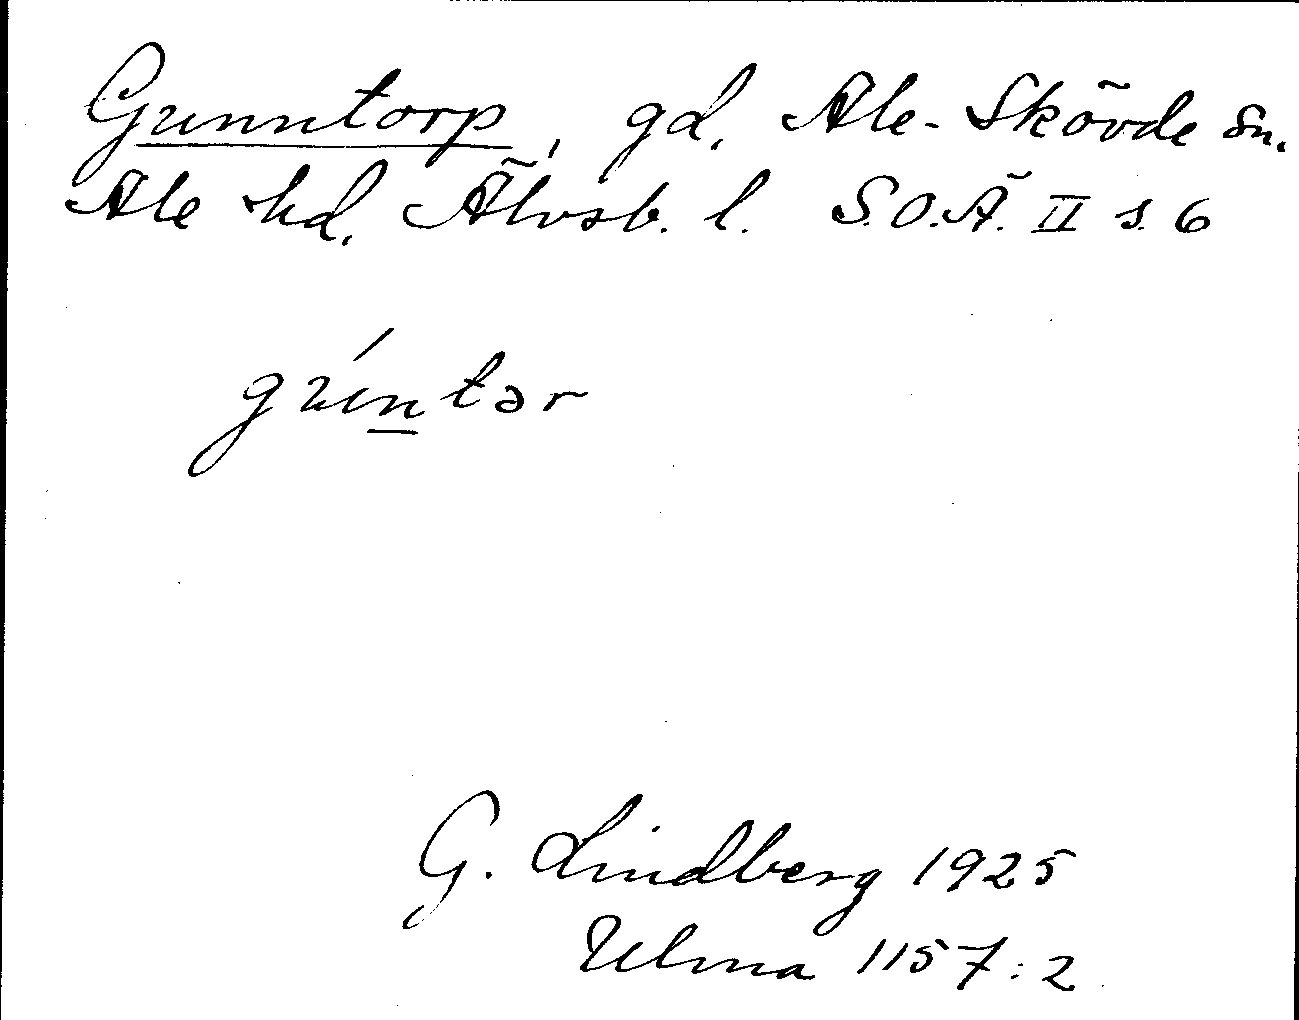 Gunntorp, gd, Ale-Skövde sn.
Ale hd, Älvsb. l. S.O.Ä. II s. 6
gúntər
G. Lindberg 1925
Ulma 1157:2